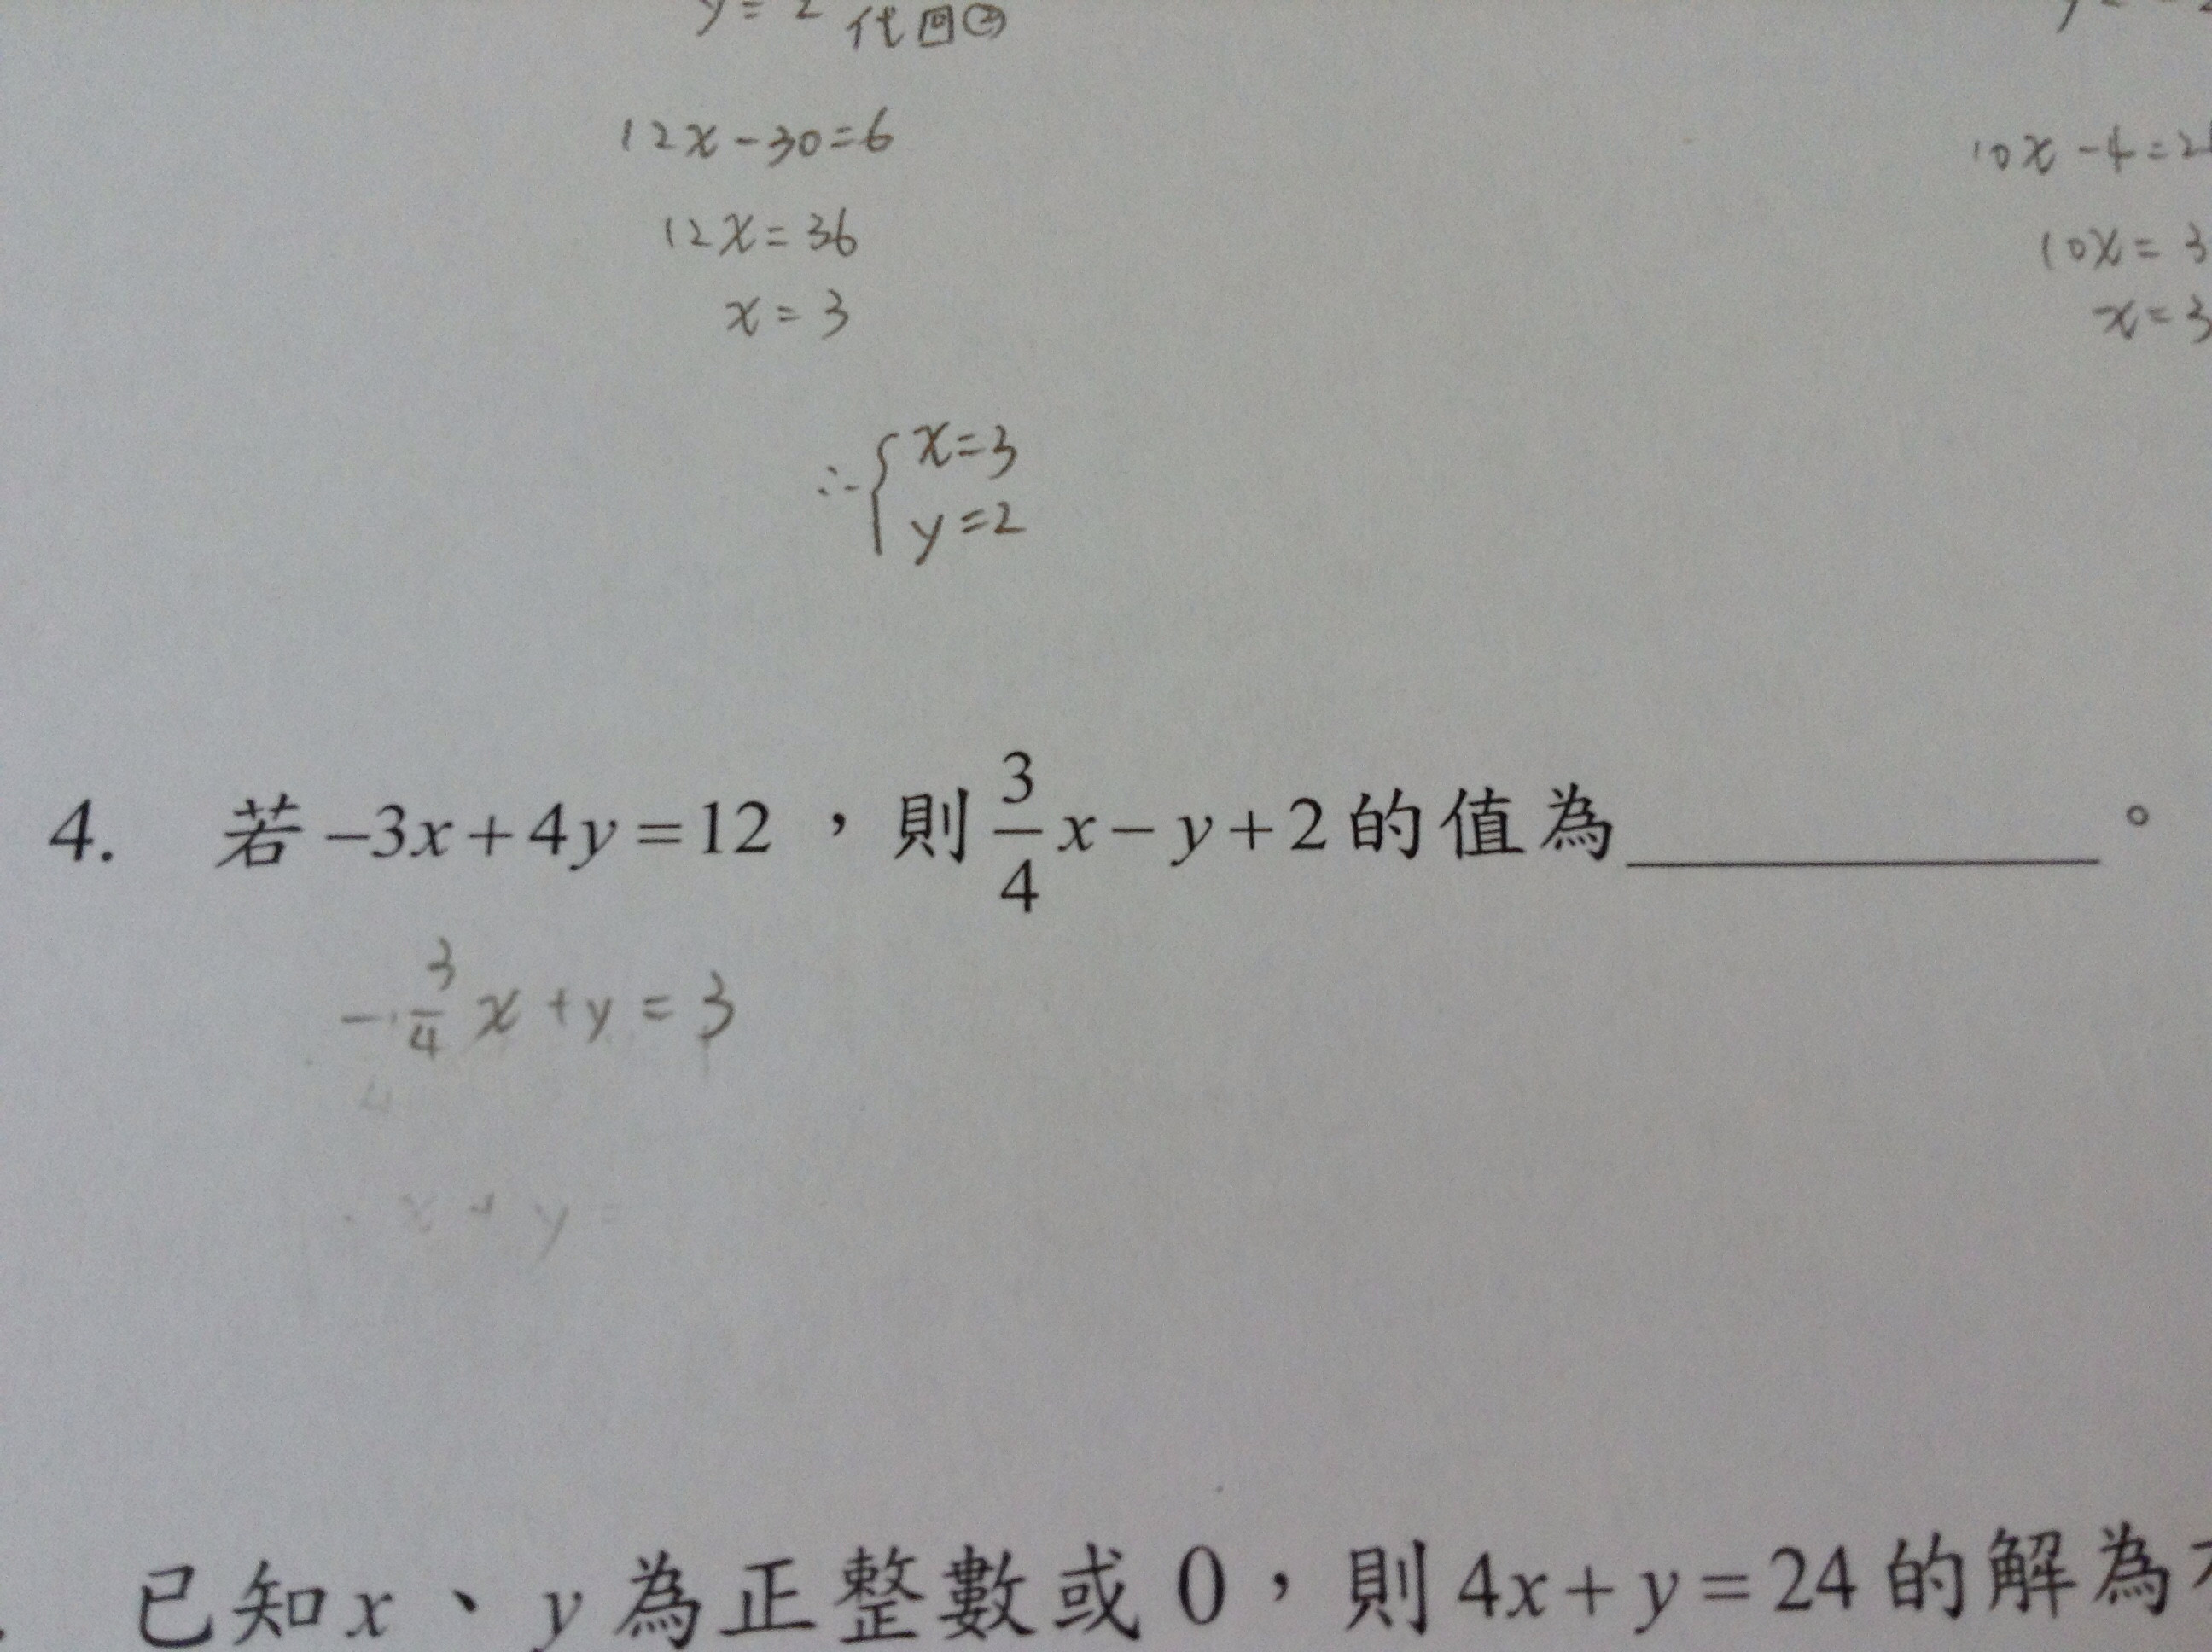 y = 2 代回②
12x - 30 = 6
10x - 4 = 2
12x = 36
10x = 3
x = 3
x = 3
∴ { x = 3
y = 2
4. 若 -3x + 4y = 12 ,則 3/4 x - y + 2 的值為__________。
- 3/4 x + y = 3
4
x + y =
已知 x、y 為正整數或 0,則 4x + y = 24 的解為